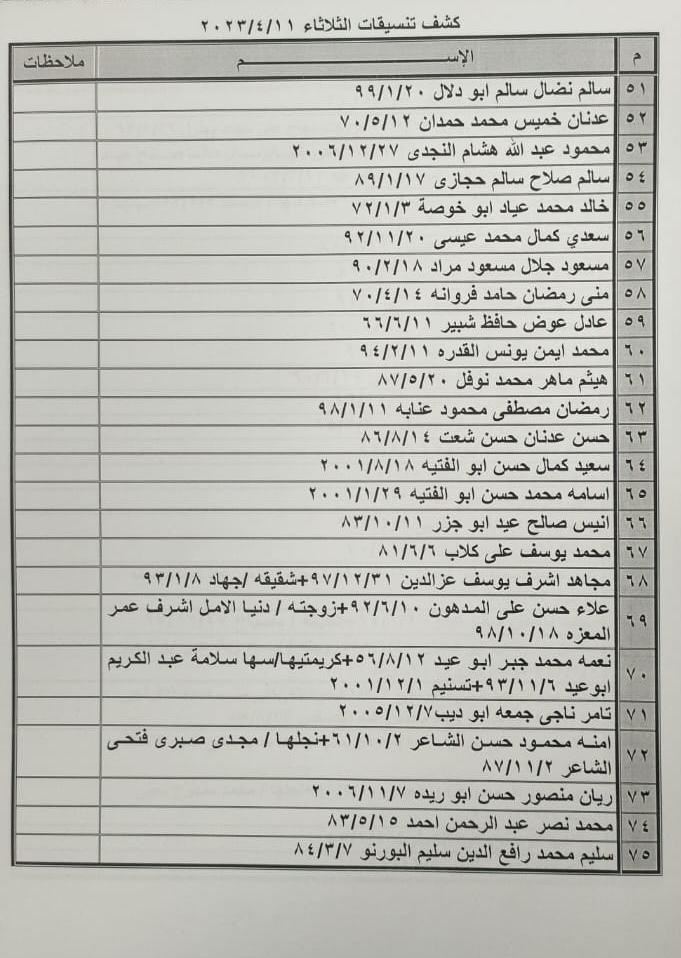 كشف تنسيقات الثلاثاء ٢٠٢٣/٤/١١
م الإســــم ملاحظات
٥١ سالم نضال سالم ابو دلال ٩٩/١/٢٠
٥٢ عدنان خميس محمد حمدان ٧٠/٥/١٢
٥٣ محمود عبد الله هشام النجدى ٢٠٠٦/١٢/٢٧
٥٤ سالم صلاح سالم حجازى ٨٩/١/١٧
٥٥ خالد محمد عياد ابو خوصة ٧٢/١/٣
٥٦ سعدي كمال محمد عيسى ٩٢/١١/٢٠
٥٧ مسعود جلال مسعود مراد ٩٠/٢/١٨
٥٨ منى رمضان حامد فروانه ٧٠/٤/١٤
٥٩ عادل عوض حافظ شبير ٦٦/٦/١١
٦٠ محمد ايمن يونس القدره ٩٤/٢/١١
٦١ هيثم ماهر محمد نوفل ٨٧/٥/٢٠
٦٢ رمضان مصطفى محمود عنابه ٩٨/١/١١
٦٣ حسن عدنان حسن شعت ٨٦/٨/١٤
٦٤ سعيد كمال حسن ابو الفتيه ٢٠٠١/٨/١٨
٦٥ اسامه محمد حسن ابو الفتيه ٢٠٠١/١/٢٩
٦٦ انيس صالح عيد ابو جزر ٨٣/١٠/١١
٦٧ محمد يوسف على كلاب ٨١/٦/٦
٦٨ مجاهد اشرف يوسف عزالدين ٩٧/١٢/٣١+شقيقه /جهاد ٩٣/١/٨
٦٩ علاء حسن على المدهون ٩٢/٦/١٠+زوجته / دنيا الامل اشرف عمر
المعزه ٩٨/١٠/١٨
٧٠ نعمه محمد جبر ابو عيد ٥٦/٨/١٢+كريمتيها/سها سلامة عبد الكريم
ابوعيد ٩٣/١١/٦+تسنيم ٢٠٠١/١٢/١
٧١ تامر ناجى جمعه ابو ديب٢٠٠٥/١٢/٧
٧٢ امنه محمود حسن الشاعر ٦١/١٠/٢+نجلها / مجدى صبرى فتحى
الشاعر ٨٧/١١/٢
٧٣ ريان منصور حسن ابو ريده ٢٠٠٦/١١/٧
٧٤ محمد نصر عبد الرحمن احمد ٨٣/٥/١٥
٧٥ سليم محمد رافع الدين سليم البورنو ٨٤/٣/٧